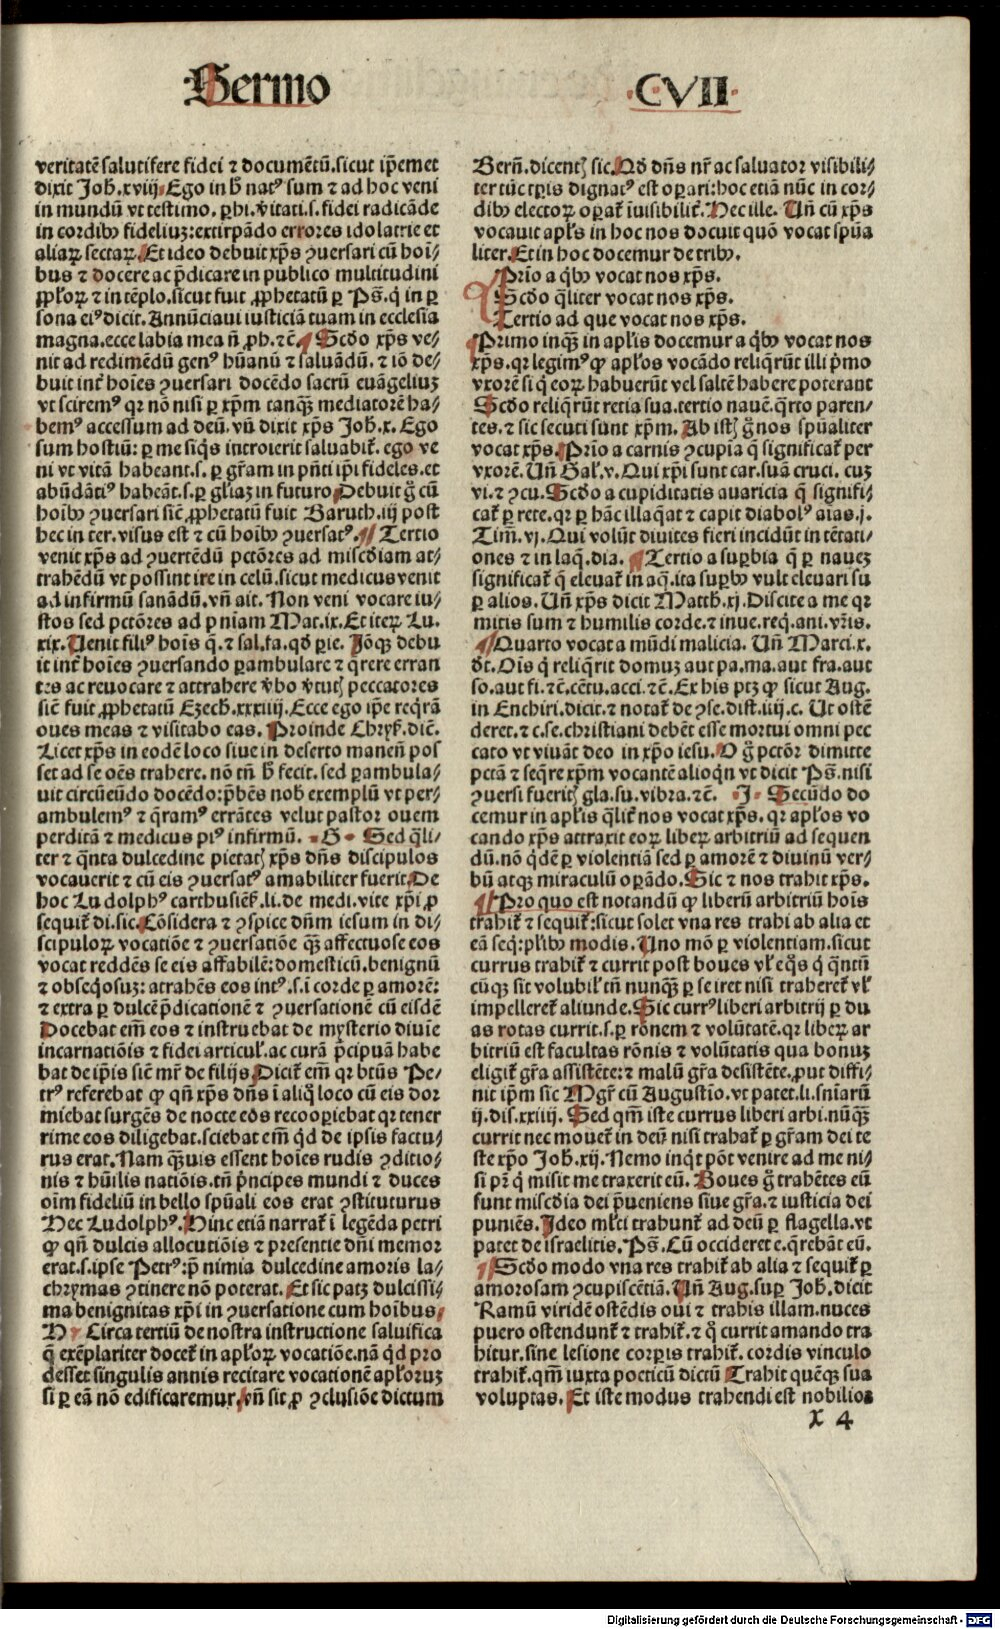 Sermo
CVII
veritatē salutifere fidei ⁊ documētū. sicut ip̄emet
dixit Joh̄. xviij. Ego in h̄ natꝰ sum ⁊ ad hoc veni
in mundū vt testimo. ꝑhi. v̄itati. s. fidei radicāde
in cordibꝰ fideliuꝫ: extirpādo errores idolatrie et
aliaꝝ sectaꝝ. Et ideo debuit xp̄s ꝯuersari cū hoī⸗
bus ⁊ docere ac p̄dicare in publico multitudini
ꝓploꝝ ⁊ in tēplo. sicut fuit ꝓphetatū ꝑ Ps̄. q̇ in ꝑ
sona eiꝰ dicit. Annūciaui iusticiā tuam in ecclesia
magna. ecce labia mea ñ ꝓh. ⁊c̄. ¶ Scd̄o xp̄s ve⸗
nit ad redimēdū genꝰ hūanū ⁊ saluādū. ⁊ iō de⸗
buit int̄ hoīes ꝯuersari docēdo sacrū euāgeliuꝫ
vt sciremꝰ qꝛ nō nisi ꝑ xp̄m tanqꝫ mediatorē ha⸗
bemꝰ accessum ad deū. vn̄ dixit xp̄s Joh̄. x. Ego
sum hostiū: ꝑ me siq̇s introierit saluabit̄. ego ve
ni vt vitā habeant. s. ꝑ gr̄am in pn̄ti ip̄i fideles. et
abūdātiꝰ habeāt. s. ꝑ gl̄iaꝫ in futuro. Debuit g̊ cū
hoībꝰ ꝯuersari sic̄ ꝓphetatū fuit Baruch. iij post
hec in ter. visus est ⁊ cū hoībꝰ ꝯuersatꝰ. ¶ Tertio
venit xp̄s ad ꝯuertēdū pctōres ad miscd̄iam at⸗
trahēdū vt possint ire in celū. sicut medicus venit
ad infirmū sanādū. vn̄ ait. Non veni vocare iu⸗
stos sed pctōres ad pniam Mat. ix. Et iteꝝ Lu.
xix. Uenit filiꝰ hoīs q̄. ⁊ sal. fa. qd̄ ꝑie. Jōqꝫ debu
it int̄ hoīes ꝯuersando ꝑambulare ⁊ q̄rere erran
tes ac reuocare ⁊ attrahere v̄bo v̄tutꝭ peccatores
sic̄ fuit ꝓphetatū Ezech̄. xxxiiij. Ecce ego ip̄e req̄rā
oues meas ⁊ visitabo eas. Proinde Chrys̄. dic̄.
Licet xp̄s in eodē loco siue in deserto manen̄ pos
set ad se oēs trahere. nō tn̄ h̄ fecit. sed ꝑambula⸗
uit circūeūdo docēdo: p̄bēs nob̄ exemplū vt per⸗
ambulemꝰ ⁊ q̄ramꝰ errātes velut pastor ouem
perditā ⁊ medicus piꝰ infirmū. ·G· Sed q̄li⸗
ter ⁊ q̄nta dulcedine pietatꝭ xp̄s dn̄s discipulos
vocauerit ⁊ cū eis ꝯuersatꝰ amabiliter fuerit. De
hoc Ludolphꝰ carthusieñ. li. de medi. vite xp̄i ꝓ
sequit̄ di. sic. Cōsidera ⁊ ꝯspice dn̄m iesum in di⸗
scipuloꝝ vocatiōe ⁊ ꝯuersatiōe qꝫ affectuose eos
vocat reddēs se eis affabilē: domesticū. benignū
⁊ obseq̇osuꝫ: atrahēs eos intꝰ. s. ī corde ꝑ amorē:
⁊ extra ꝑ dulcē p̄dicationē ⁊ ꝯuersationē cū eisdē
Docebat em̄ eos ⁊ instruebat de mysterio diuīe
incarnatiōis ⁊ fidei articul̄. ac curā p̄cipuā habe
bat de ip̄is sic̄ mr̄ de filijs. Dicit̄ em̄ qꝛ btūs Pe⸗
trꝰ referebat ꝙ qn̄ xp̄s dn̄s ī aliq̊ loco cū eis dor
miebat surgēs de nocte eos recoopiebat qꝛ tener
rime eos diligebat. sciebat em̄ qd̄ de ipsis factu⸗
rus erat. Nam qꝫuis essent hoīes rudis ꝯditio⸗
nis ⁊ hūilis natiōis. tn̄ p̄ncipes mundi ⁊ duces
oīm fideliū in bello spūali eos erat ꝯstituturus
Hec Ludolphꝰ. Hinc etiā narrat̄ ī legēda petri
ꝙ qn̄ dulcis allocutiōis ⁊ presentie dn̄i memor
erat. s. ipse Petrꝰ: p̄ nimia dulcedine amoris la⸗
chrymas ꝯtinere nō poterat. Et sic patꝫ dulcissi⸗
ma benignitas xp̄i in ꝯuersatione cum hoībus.
H · Circa tertiū de nostra instructione saluifica
q̄ exēplariter docet̄ in apl̄oꝝ vocatiōe. nā q̇d pro
desset singulis annis recitare vocationē apl̄oruꝫ
si ꝑ eā nō edificaremur. vn̄ sit ꝓ ꝯclusiōe dictum
Bern̄. dicentꝭ sic. Qd̄ dn̄s nr̄ ac saluator visibili⸗
ter tūc tꝑis dignatꝰ est oꝑari: hoc etiā nūc in cor⸗
dibꝰ electoꝝ oꝑat̄ īuisibilit̄. Hec ille. Un̄ cū xp̄s
vocauit apl̄s in hoc nos docuit quō vocat spūa
liter. Et in hoc docemur de tribꝰ.
Prīo a q̇bꝰ vocat nos xp̄s.
Scd̄o q̄liter vocat nos xp̄s.
Tertio ad que vocat nos xp̄s.
¶ Primo inqꝫ in apl̄is docemur a q̇bꝰ vocat nos
xp̄s. qꝛ legimꝰ ꝙ apl̄os vocādo reliq̄rūt illi p̄mo
vxorē si q̇ eoꝝ habuerūt vel saltē habere poterant
Scd̄o reliq̄rūt retia sua. tertio nauē. q̄rto paren⸗
tes. ⁊ sic secuti sunt xp̄m. Ab istꝭ g̊ nos spūaliter
vocat xp̄s. Prīo a carnis ꝯcupīa q̄ significat̄ per
vxorē. Un̄ Gal̄. v. Qui xp̄i sunt car. suā cruci. cuꝫ
vi. ⁊ ꝯcu. Scd̄o a cupiditatis auaricia q̄ signifi⸗
cat̄ ꝑ rete. qꝛ ꝑ hāc illaq̄at ⁊ capit diabolꝰ aīas. j.
Tim̄. vj. Qui volūt diuites fieri incidūt in tētati⸗
ones ⁊ in laq̄. dia. ¶ Tertio a suꝑbia q̄ ꝑ naueꝫ
significat̄ q̄ eleuat̄ in aq̄. ita suꝑbꝰ vult eleuari su
ꝑ alios. Un̄ xp̄s dicit Matth̄. xj. Discite a me qꝛ
mitis sum ⁊ humilis corde. ⁊ inue. req̄. ani. vr̄is.
¶ Quarto vocat a mūdi malicia. Un̄ Marci. x.
dr̄. Oīs q̇ reliq̄rit domuꝫ aut pa. ma. aut fra. aut
so. aut fi. ⁊c̄. cētu. acci. ⁊c̄. Ex his ptꝫ ꝙ sicut Aug.
in Enchiri. dicit. ⁊ notat̄ de ꝯse. dist. iiij. c. Ut ostē
deret. ⁊ c. se. christiani debēt esse mortui omni pec
cato vt viuāt deo in xp̄o iesu. O g̊ pctōr dimitte
pctā ⁊ seq̄re xp̄m vocantē alioq̇n vt dicit Ps̄. nisi
ꝯuersi fueritꝭ gla. su. vibra. ⁊c̄. ·J· Secūdo do
cemur in apl̄is q̄lit̄ nos vocat xp̄s. qꝛ apl̄os vo
cando xp̄s attraxit eoꝝ libeꝝ arbitriū ad sequen
dū. nō q̇dē ꝑ violentiā sed ꝑ amorē ⁊ diuinū ver⸗
bū atqꝫ miraculū oꝑādo. Sic ⁊ nos trahit xp̄s.
¶ Pro quo est notandū ꝙ liberū arbitriū hoīs
trahit̄ ⁊ sequit̄: sicut solet vna res trahi ab alia et
eā seq̇: pl̄ibꝰ modis. Uno mō ꝑ violentiam. sicut
currus trahit̄ ⁊ currit post boues vl̄ eq̊s q̇ q̄ntū
cūqꝫ sit volubil̄ tn̄ nunqꝫ ꝑ se iret nisi traheret̄ vl̄
impelleret̄ aliunde. Sic currꝰ liberi arbitrij ꝑ du
as rotas currit. s. ꝑ rōnem ⁊ volūtatē. qꝛ libeꝝ ar
bitriū est facultas rōnis ⁊ volūtatis qua bonuꝫ
eligit̄ gr̄a assistēte: ⁊ malū gr̄a desistēte. ꝓut diffi⸗
nit ip̄m sic Mgr̄ cū Augustīo. vt patet. li. sn̄iarū
ij. dis. xxiiij. Sed qm̄ iste currus liberi arbi. nūqꝫ
currit nec mouet̄ in deū nisi trahat̄ ꝑ gr̄am dei te
ste xp̄o Joh̄. xij. Nemo inq̇t pōt venire ad me ni⸗
si pr̄ q̇ misit me traxerit eū. Boues g̊ trahētes eū
sunt miscd̄ia dei p̄ueniens siue gr̄a. ⁊ iusticia dei
puniēs. Jdeo ml̄ti trahunt̄ ad deū ꝑ flagella. vt
patet de israelitis. Ps̄. Cū occideret e. q̄rebāt eū.
¶ Scd̄o modo vna res trahit̄ ab alia ⁊ sequit̄ ꝑ
amorosam ꝯcupiscētiā. Un̄ Aug. suꝑ Joh̄. dicit
Ramū viridē ostēdis oui ⁊ trahis illam. nuces
puero ostendunt̄ ⁊ trahit̄. ⁊ q̊ currit amando tra
hitur. sine lesione corꝑis trahit̄. cordis vinculo
trahit̄. qm̄ iuxta poeticū dictū Trahit quēqꝫ sua
voluptas. Et iste modus trahendi est nobilioꝛ
x 4
Digitalisierung gefördert durch die Deutsche Forschungsgemeinschaft - DFG